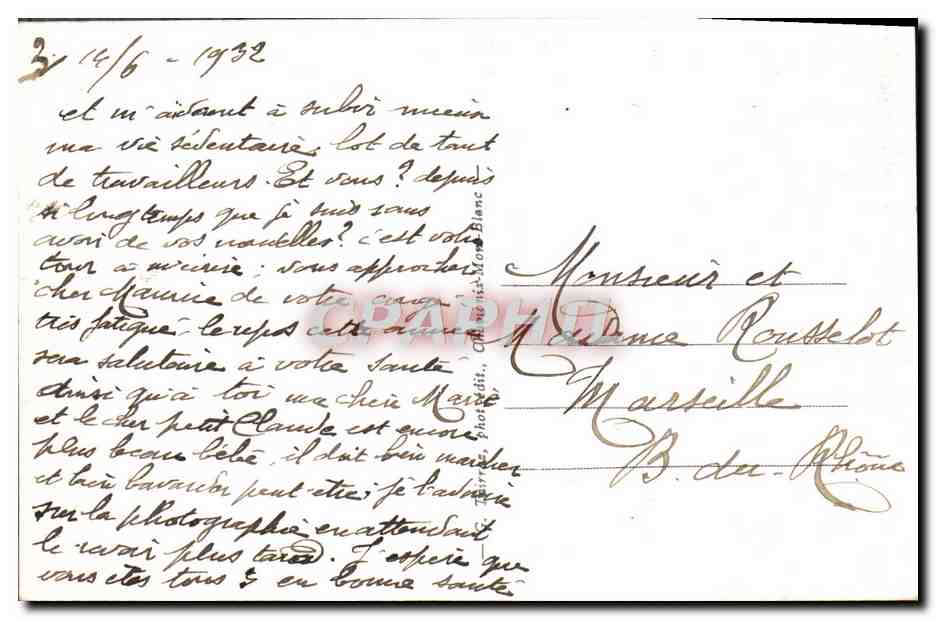 2/ 14/6 - 1932
et m'aideront à subir mieux
ma vie sédentaire, lot de tant
de travailleurs. Et vous? depuis
si longtemps que je suis sans
avoir de vos nouvelles? c'est votre
tour à m'écrire; vous approchez
cher Maurice de votre congé
très fatigué - le repos cette année
sera salutaire à votre santé
ainsi qu'à toi ma chère Marie
et le cher petit Claude est encore
plus beau bébé, il doit bien marcher
et bien bavarder peut-être; je l'admire
sur la photographie en attendant
le revoir plus tard. J'espère que
vous êtes tous 3 en bonne santé
phot. édit., Chamonix-Mont-Blanc
Monsieur et
Madame Rousselot
Marseille
B. du-Rhône
CPAPHIL